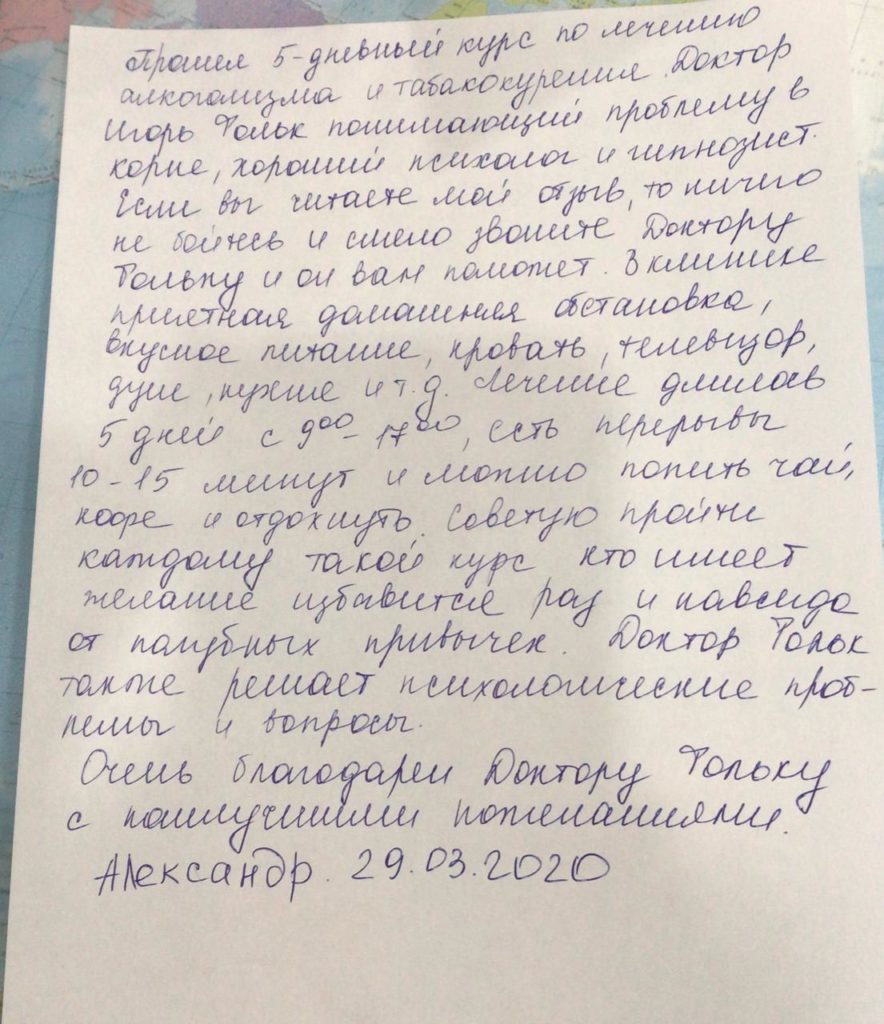 Прошел 5-дневный курс по лечению
алкоголизма и табакокурения. Доктор
Игорь Тольк понимающий проблему в
корне, хороший психолог и гипнозист.
Если вы читаете мой отзыв, то ничего
не бойтесь и смело звоните Доктору
Тольку и он вам поможет. В клинике
приятная домашняя обстановка,
вкусное питание, кровать, телевизор,
душ, кухня и т.д. Лечение длилась
5 дней с 9⁰⁰ - 17⁰⁰, есть перерывы
10-15 минут и можно попить чай,
кофе и отдохнуть. Советую пройти
каждому такой курс кто имеет
желание избавится раз и навсегда
от пагубных привычек. Доктор Тольк
также решает психологические проб-
лемы и вопросы.
Очень благодарен Доктору Тольку
с наилучшими пожеланиями.
Александр. 29.03.2020